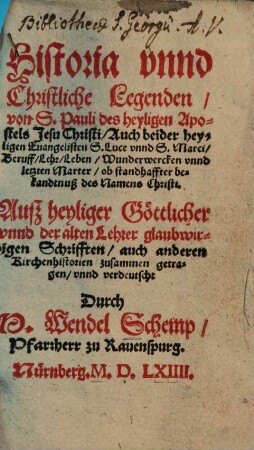 Bibliothecæ S. Georgii. A. V.
Historia vnnd
Christliche Legenden /
von S. Pauli des heyligen Apo-
stels Jesu Christi / Auch beider hey-
ligen Euangelisten S. Luce vnnd S. Marci /
Beruff / Lehr / Leben / Wunderwercken vnnd
letzten Marter / ob standhaffter be-
kandtnuß des Namens Christi.
Außz heyliger Göttlicher
vnnd der alten Lehrer glaubwir-
digen Schrifften / auch anderen
Kirchenhistorien zusammen getra-
gen / vnnd verdeutscht
Durch
M. Wendel Schemp /
Pfarzherr zu Rauenspurg.
Nürnberg. M. D. LXIIII.